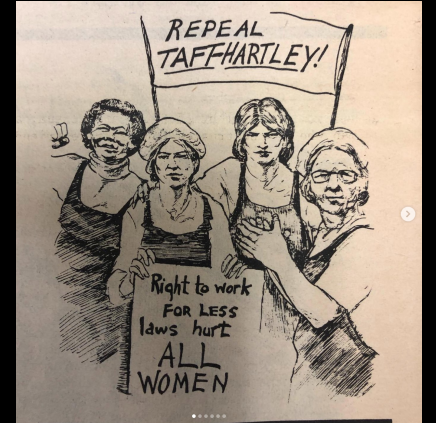 REPEAL
TAFT-HARTLEY!
Right to work
FOR LESS
laws hurt
ALL
WOMEN